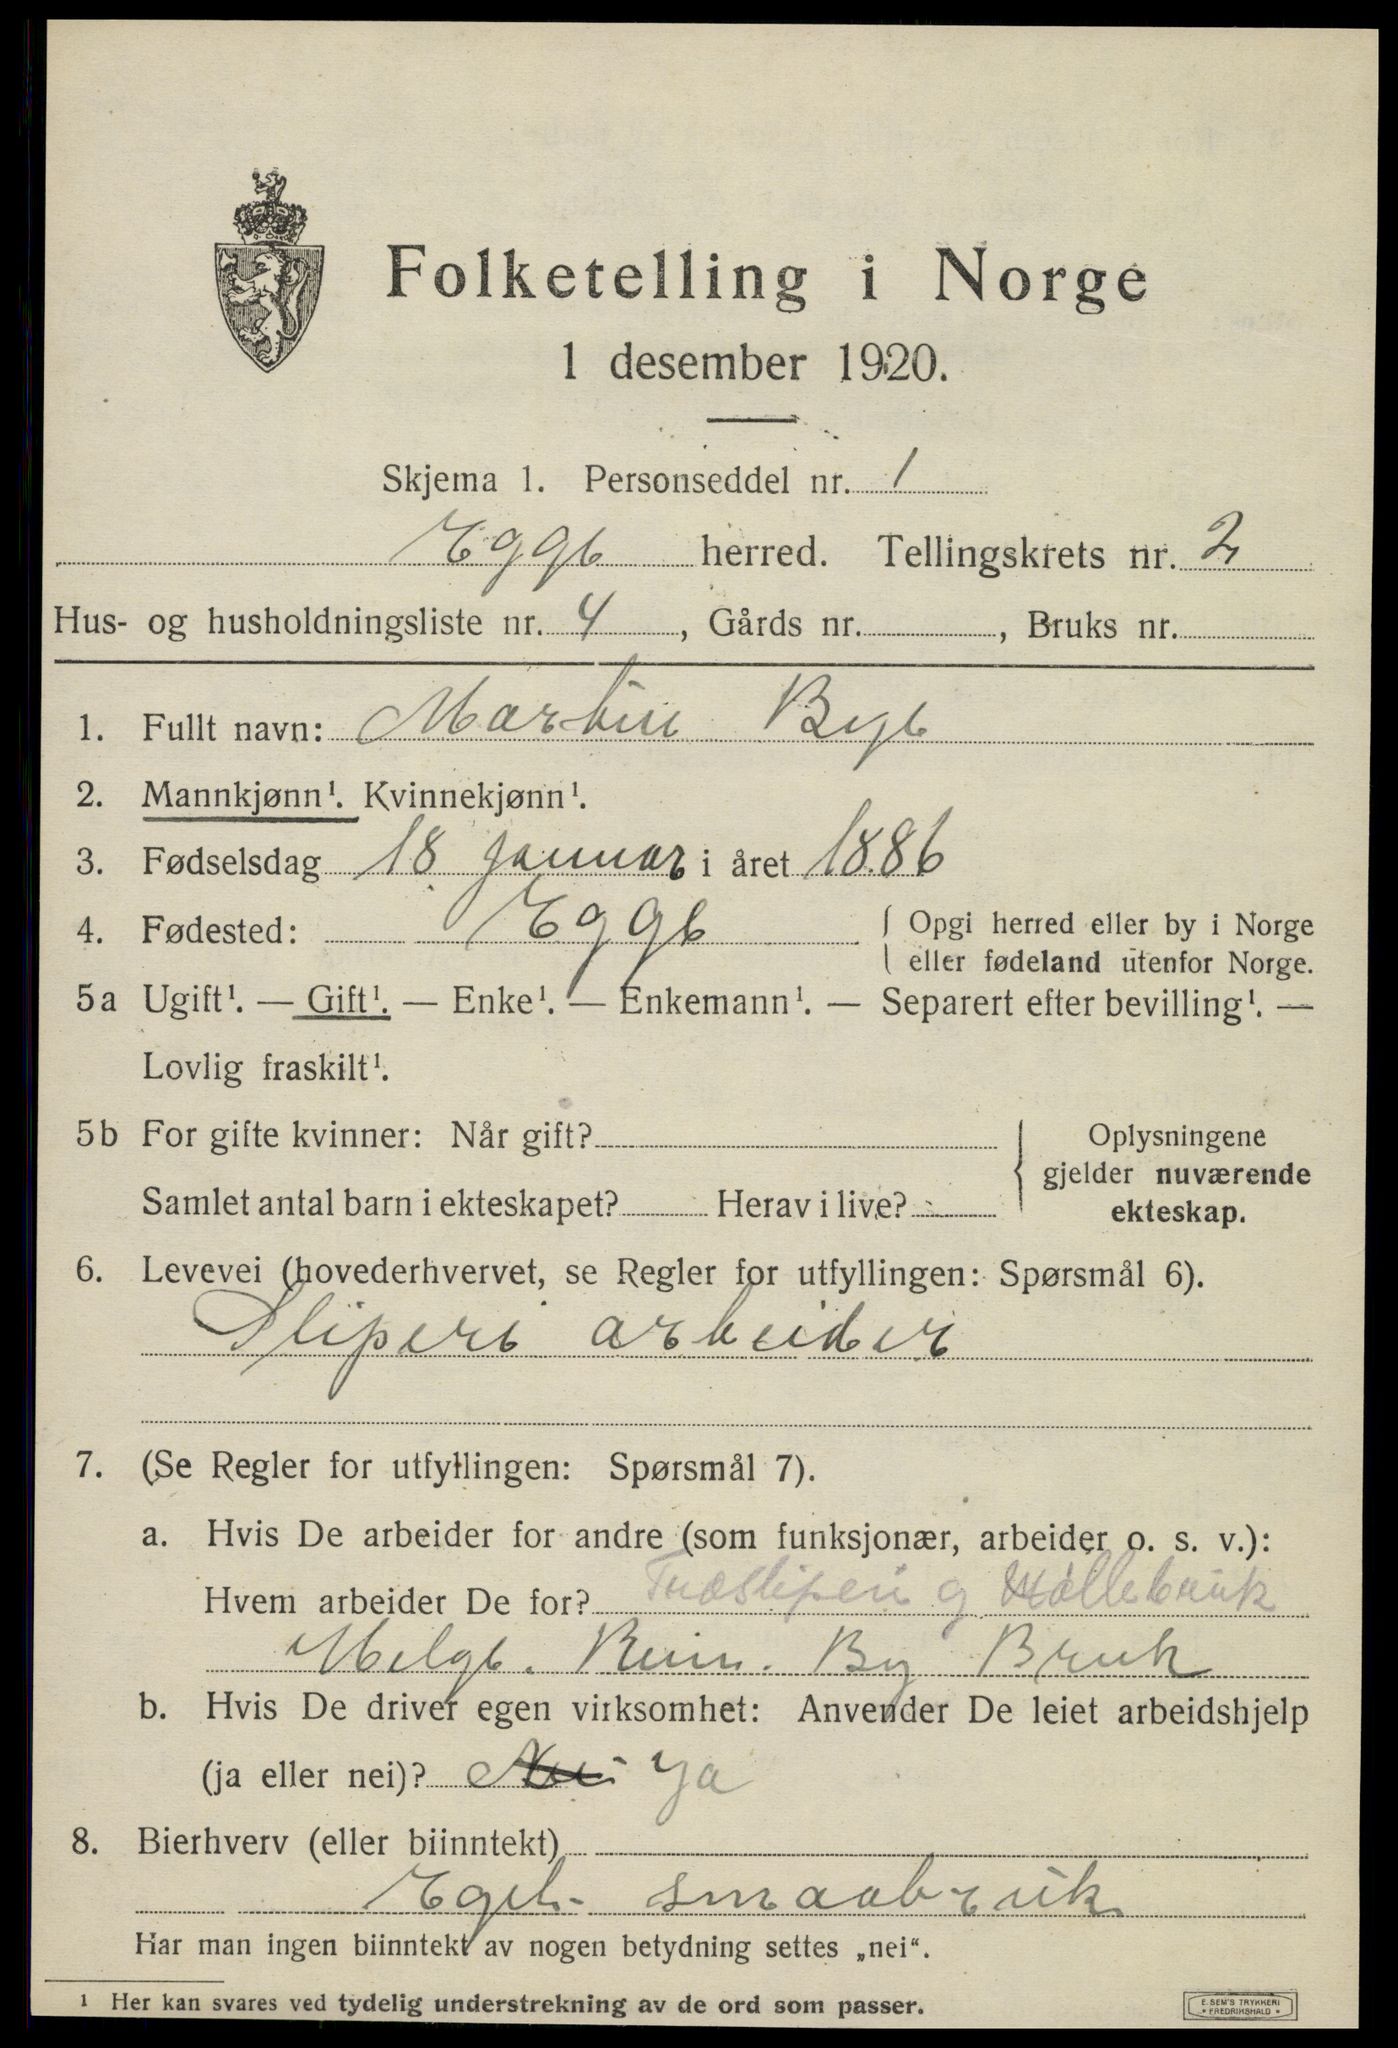 Folketelling i Norge
1 desember 1920.
Skjema 1. Personseddel nr. 1
Egge herred. Tellingskrets nr. 2
Hus- og husholdningsliste nr. 4, Gårds nr. , Bruks nr.
1. Fullt navn: Martin Bye
2. Mannkjønn¹. Kvinnekjønn¹.
3. Fødselsdag 18 januar i året 1886
4. Fødested: Egge { Opgi herred eller by i Norge
eller fødeland utenfor Norge.
5a Ugift¹. — Gift¹. — Enke¹. — Enkemann¹. — Separert efter bevilling¹. —
Lovlig fraskilt¹.
5b For gifte kvinner: Når gift? { Oplysningene
gjelder nuværende
Samlet antal barn i ekteskapet? Herav i live? ekteskap.
6. Levevei (hovederhvervet, se Regler for utfyllingen: Spørsmål 6).
Sliperi arbeider
7. (Se Regler for utfyllingen: Spørsmål 7).
a. Hvis De arbeider for andre (som funksjonær, arbeider o. s. v.):
Hvem arbeider De for? Træsliperi og Møllebruk
By Bruk
b. Hvis De driver egen virksomhet: Anvender De leiet arbeidshjelp
(ja eller nei)? Nei Ja
8. Bierhverv (eller biinntekt)
smaabruk
Har man ingen biinntekt av nogen betydning settes „nei“.
¹ Her kan svares ved tydelig understrekning av de ord som passer.
E. SEM'S TRYKKERI
• FREDRIKSHALD •